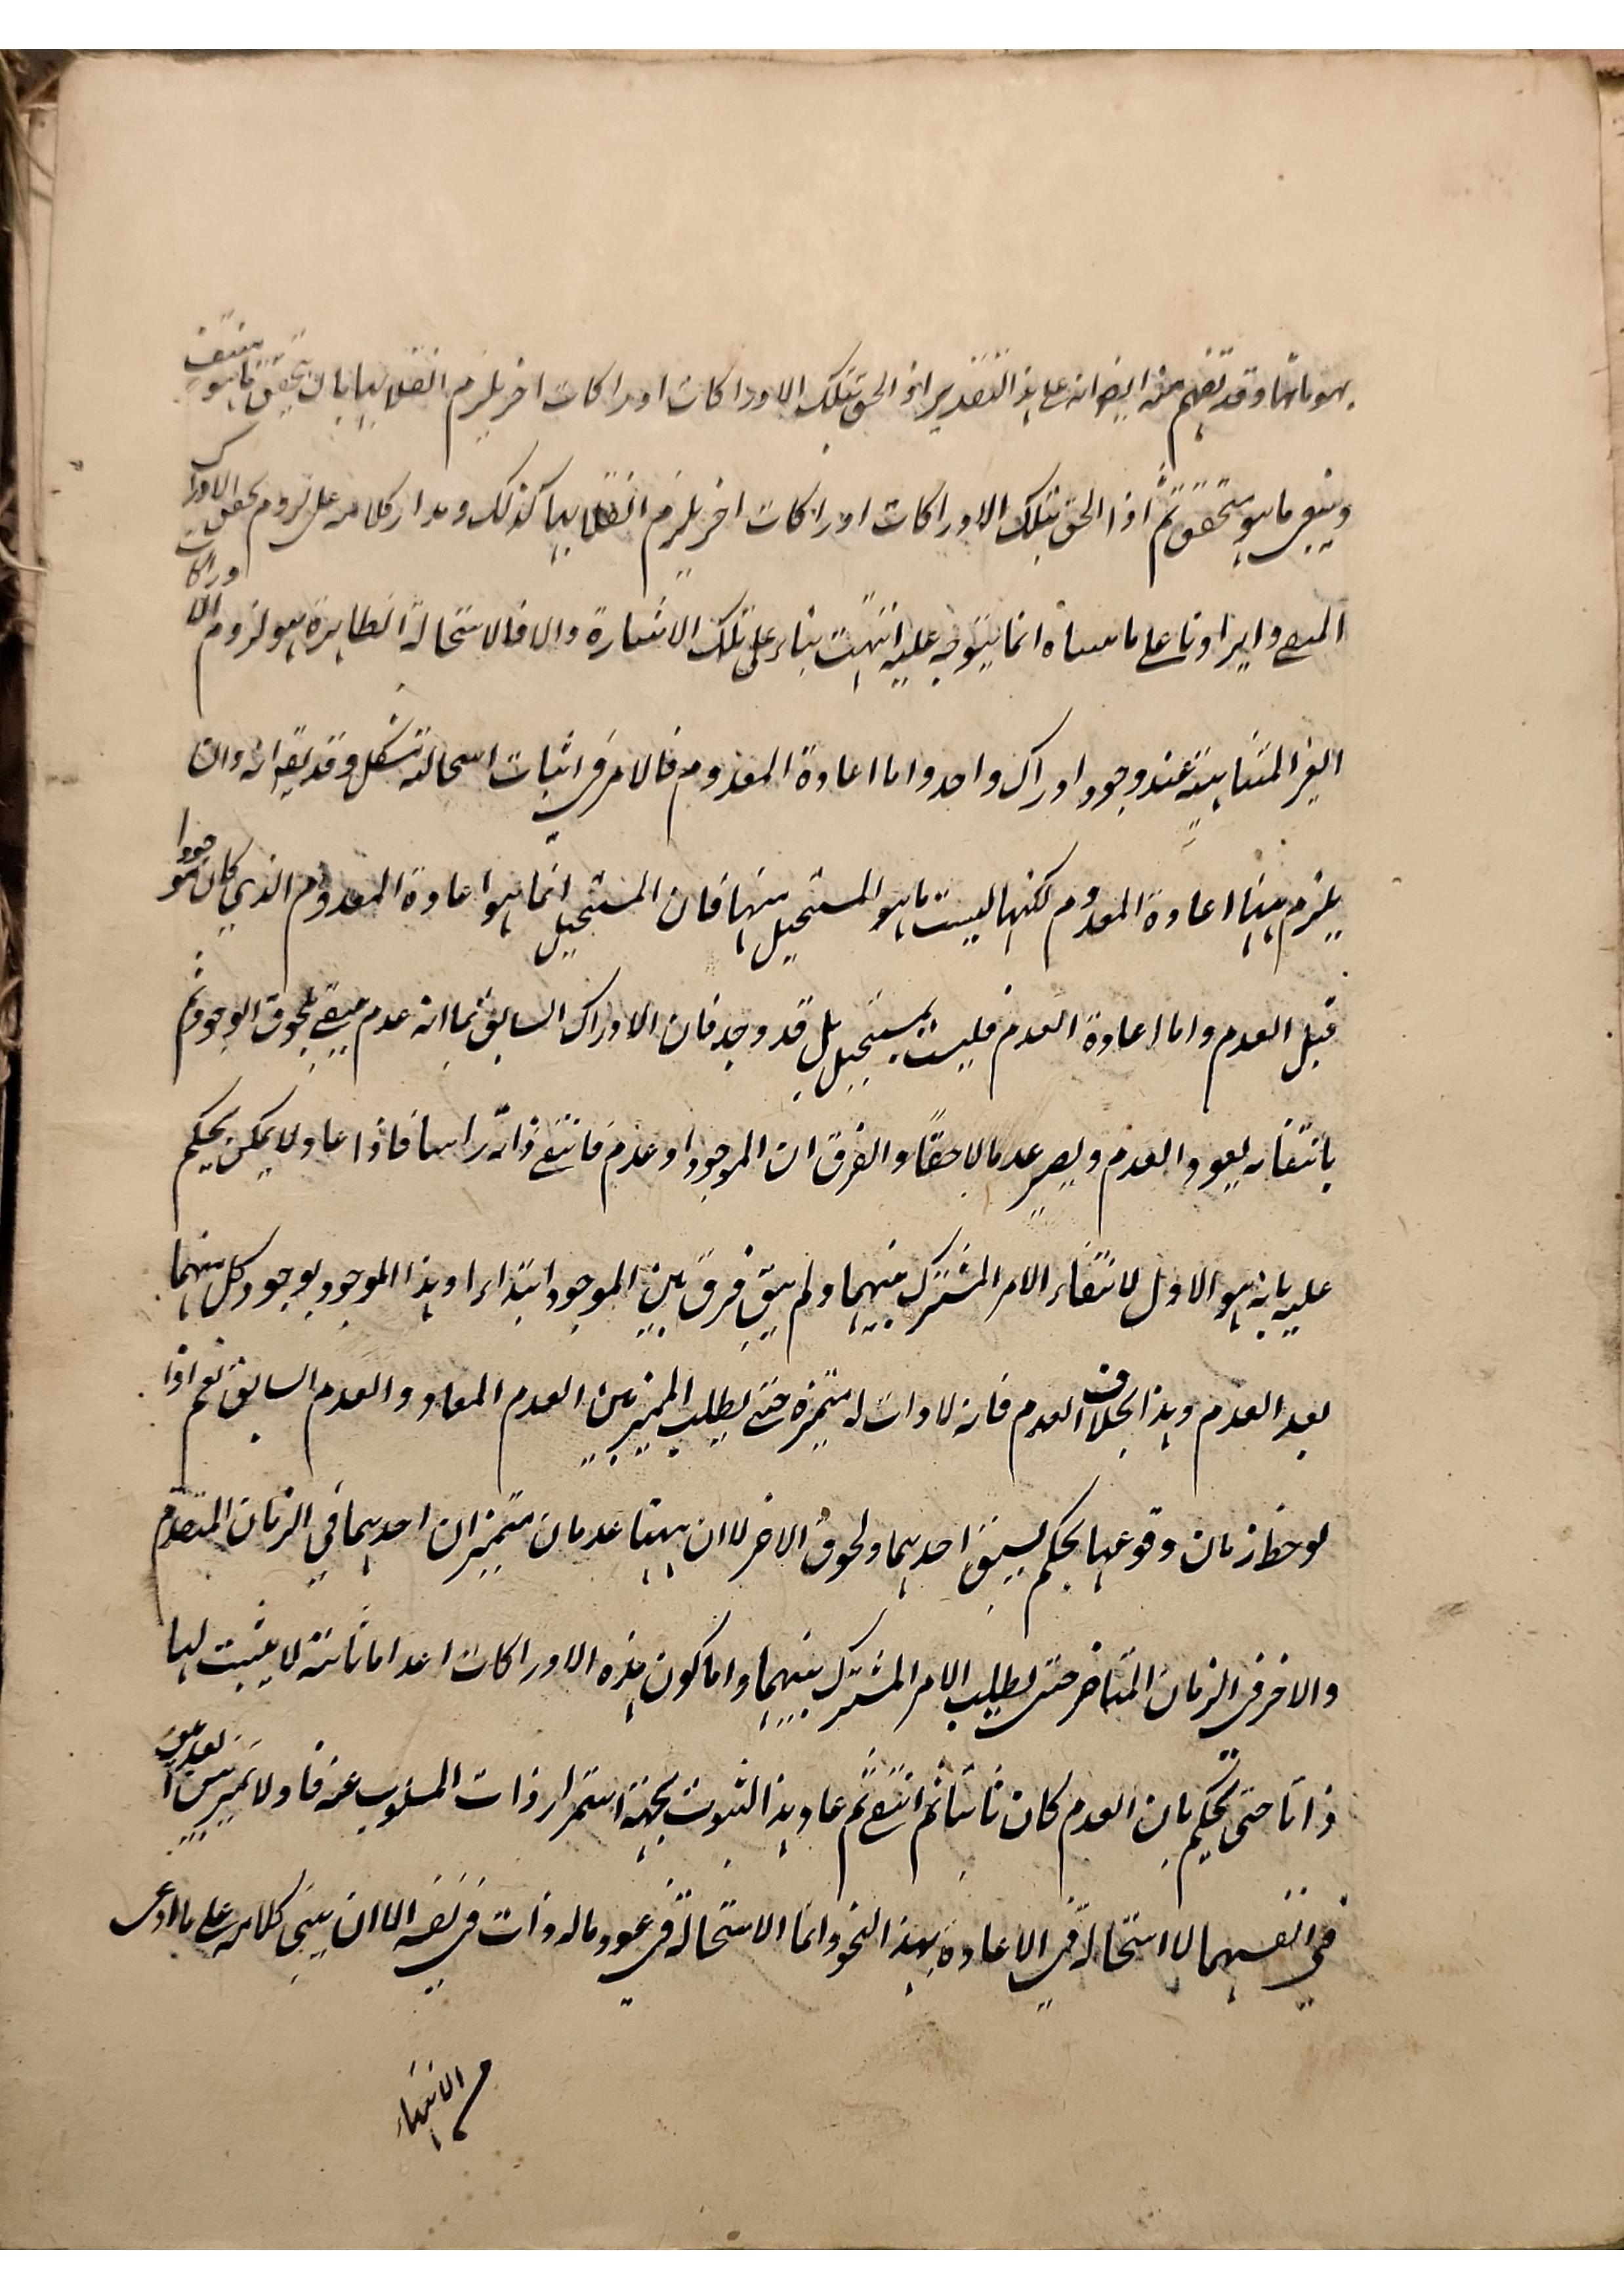 هو ماهما وقد تفهم منه ايضا انه على هذا التقدير اذا لحق بتلك الادراكات ادراكات اخر يلزم انقلابها بان يتحقق ما هو منتف
وينتفى ما هو متحقق ثم اذا لحق بتلك الادراكات ادراكات اخر يلزم انقلابها كذلك ومدار كلامه على لزوم تحقق الادراك
المنفى وايرادنا على ما سناه انما يتوجه عليه انتهت بناء على تلك الاشارة والا فالاستحالة الظاهرة هو لزوم الادراكات
الغير المتناهية عند وجود ادراك واحد واما اعادة المعدوم فالامر فى اثبات استحالته مشكل وقد يقه انه وان
يلزم ههنا اعادة المعدوم لكنها ليست ما هو المستحيل منها فان المستحيل انما هو اعادة المعدوم الذي كان موجودا
قبل العدم واما اعادة العدم فليست بمستحيل بل قد وجد فان الادراك السابق مما انه عدم ينتفى بلحوق الوجود ثم
بانتفائه يعود العدم ويصير عدما لاحقا والفرق ان الموجود اذ عدم فانتفى ذاته راسا فاذا عاد لا يمكن يحكم
عليه بانه هو الاول لانتفاء الامر المشترك بينهما ولم يبق فرق بين الموجود ابتداء وهذا الموجود بوجود كل منهما
بعد العدم وهذا بخلاف العدم فانه لا ذات له متميزة حتى يطلب المميز بين العدم المعاد والعدم السابق نعم اذا
لوحظ زمان وقوعها يحكم بسبق احدهما ولحوق الاخر لا ان ههنا عدمان متميزان احدهما في الزمان المتقدم
والاخر فى الزمان المتاخر حتى يطلب الامر المشترك بينهما واما كون هذه الادراكات اعداما ثابتة لا يثبت لها
ذاتا حتى يحكم بان العدم كان ثابتا ثم انتفى ثم عاد وهذا الثبوت بجهة استمرار ذات المسلوب عنه فاذ لا تميز بين العدمين
في انفسهما لا استحالة في الاعادة بهذا النحو وانما الاستحالة في عود ما له ذات في نفسه الا ان يبنى كلامه على ما ادعى
م الانتهاء